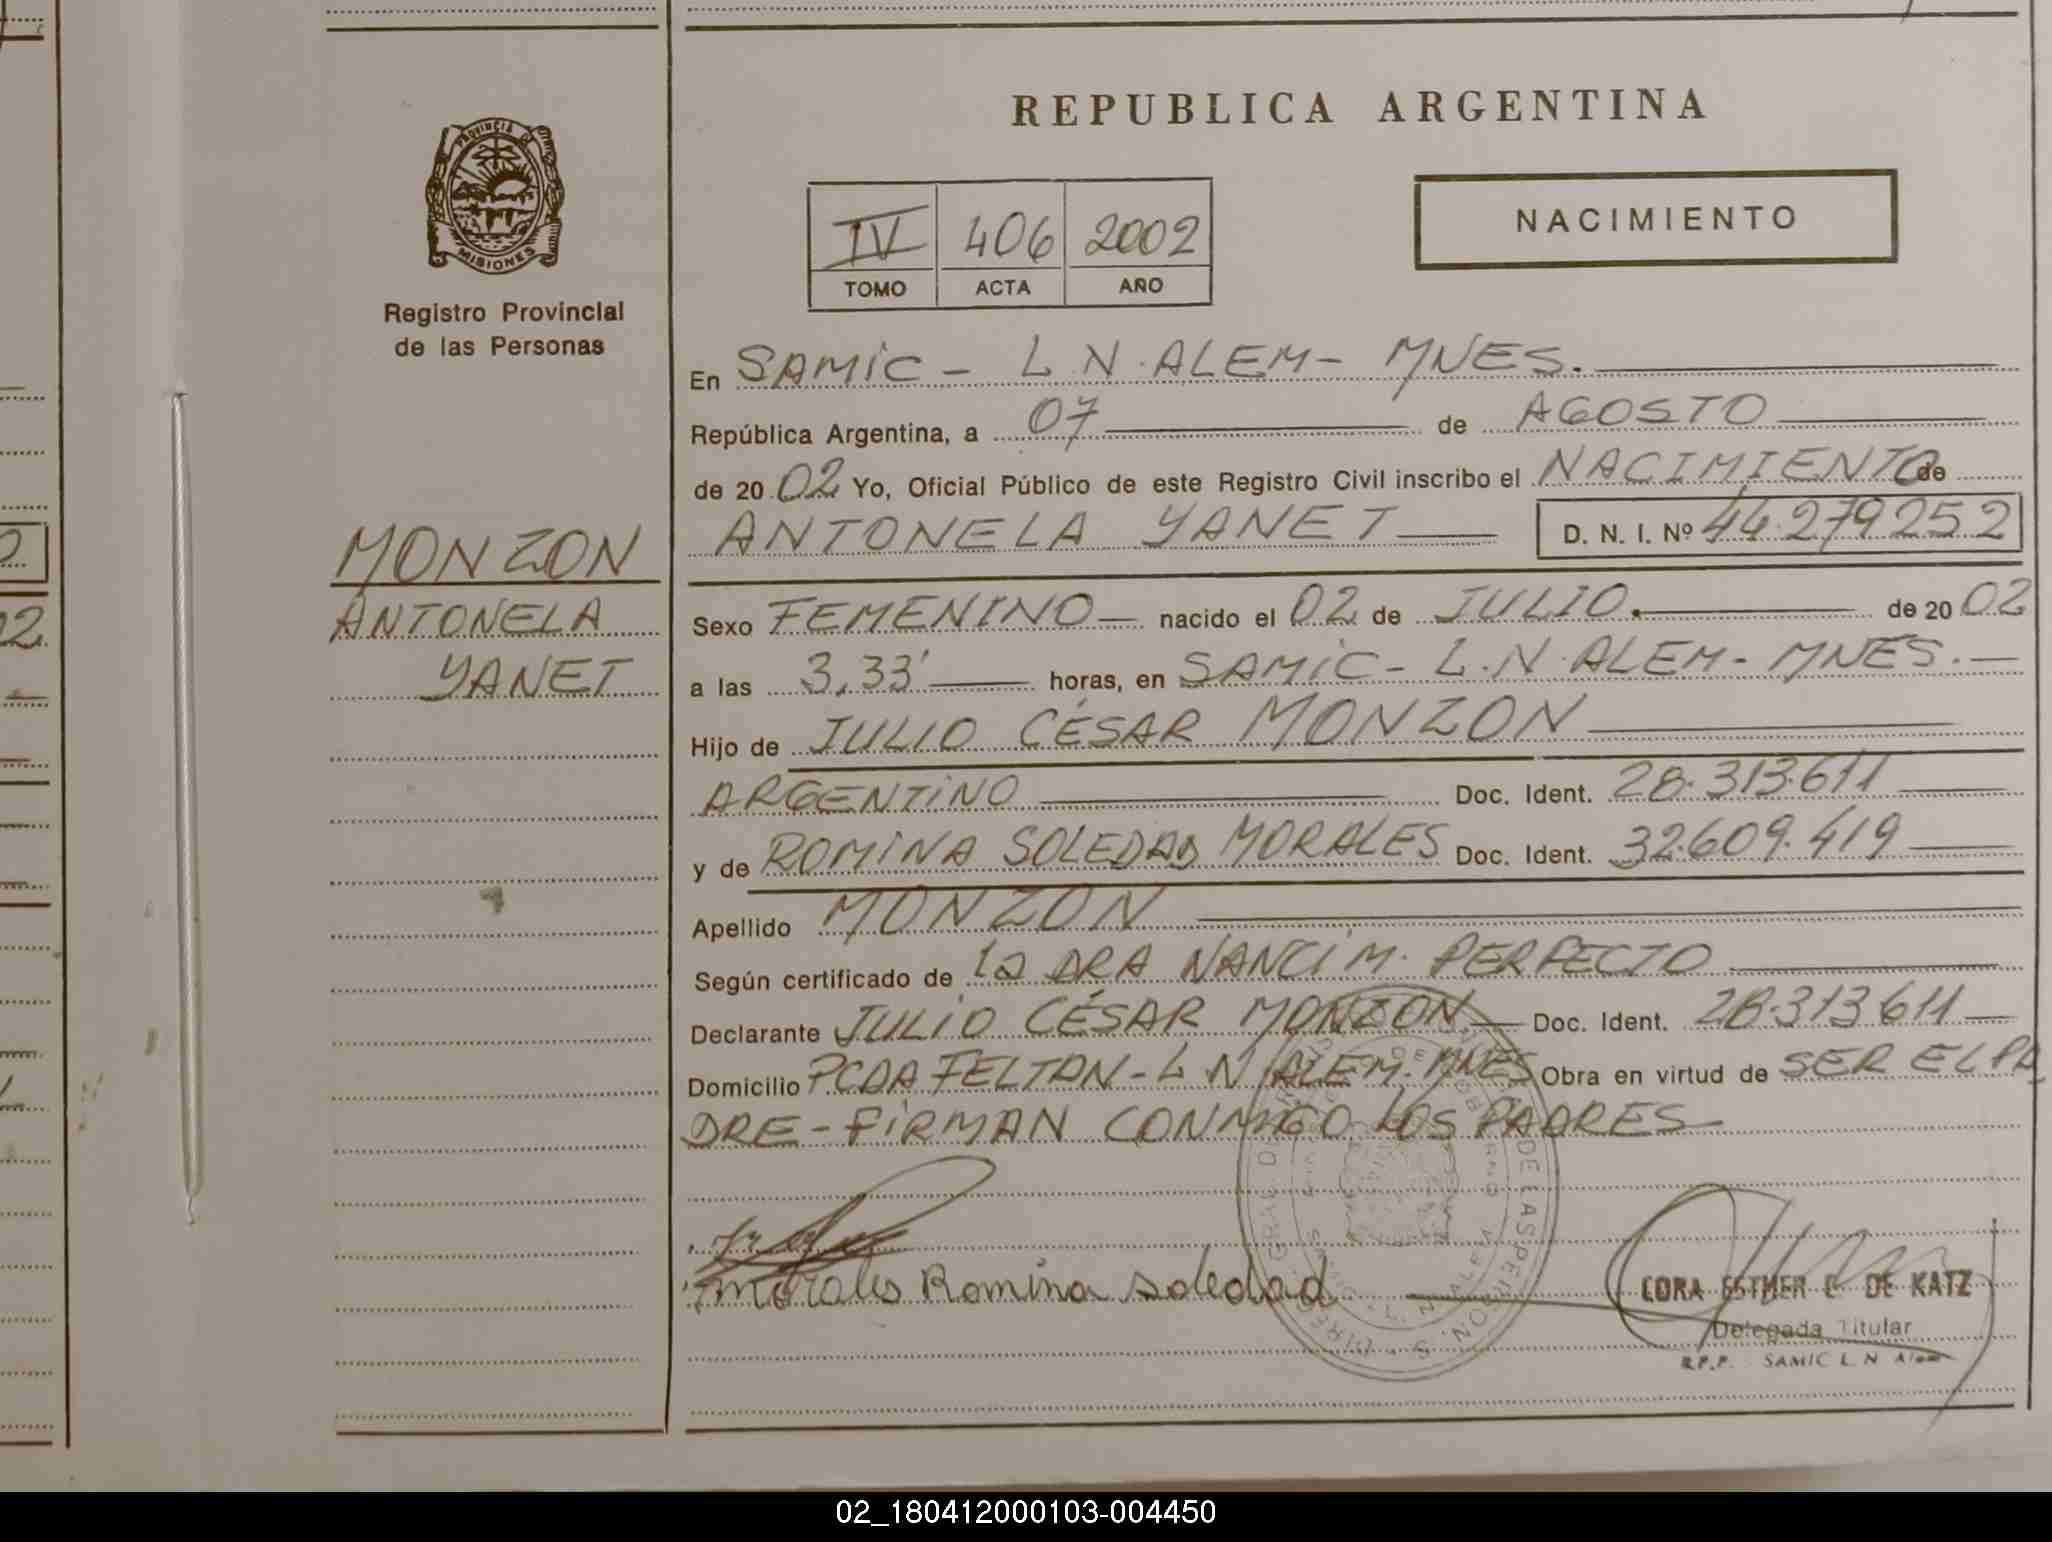 REPUBLICA ARGENTINA
PROVINCIA DE
MISIONES
Registro Provincial
de las Personas
IV 406 2002
TOMO ACTA AÑO
NACIMIENTO
En SAMIC - L.N.ALEM - MNES.
República Argentina, a 07 de AGOSTO
de 20 02 Yo, Oficial Público de este Registro Civil inscribo el NACIMIENTO de
ANTONELA YANET D. N. I. Nº 44.279252
MONZON
ANTONELA
YANET
Sexo FEMENINO nacido el 02 de JULIO. de 20 02
a las 3,33' horas, en SAMIC - L.N.ALEM - MNES.
Hijo de JULIO CÉSAR MONZON
ARGENTINO Doc. Ident. 28.313.611
y de ROMINA SOLEDAD MORALES Doc. Ident. 32.609.419
Apellido MONZON
Según certificado de la DRA NANCI M. PERFECTO
Declarante JULIO CÉSAR MONZON Doc. Ident. 28.313611
Domicilio PCDA FELTAN - L N ALEM. MNES Obra en virtud de SER EL PA
DRE - FIRMAN CONMIGO LOS PADRES
Morales Romina Soledad
DE LAS PERSON
CORA ESTHER DE KATZ
Delegada Titular
R.P.P. SAMIC L.N Alem
2
02.
02_180412000103-004450